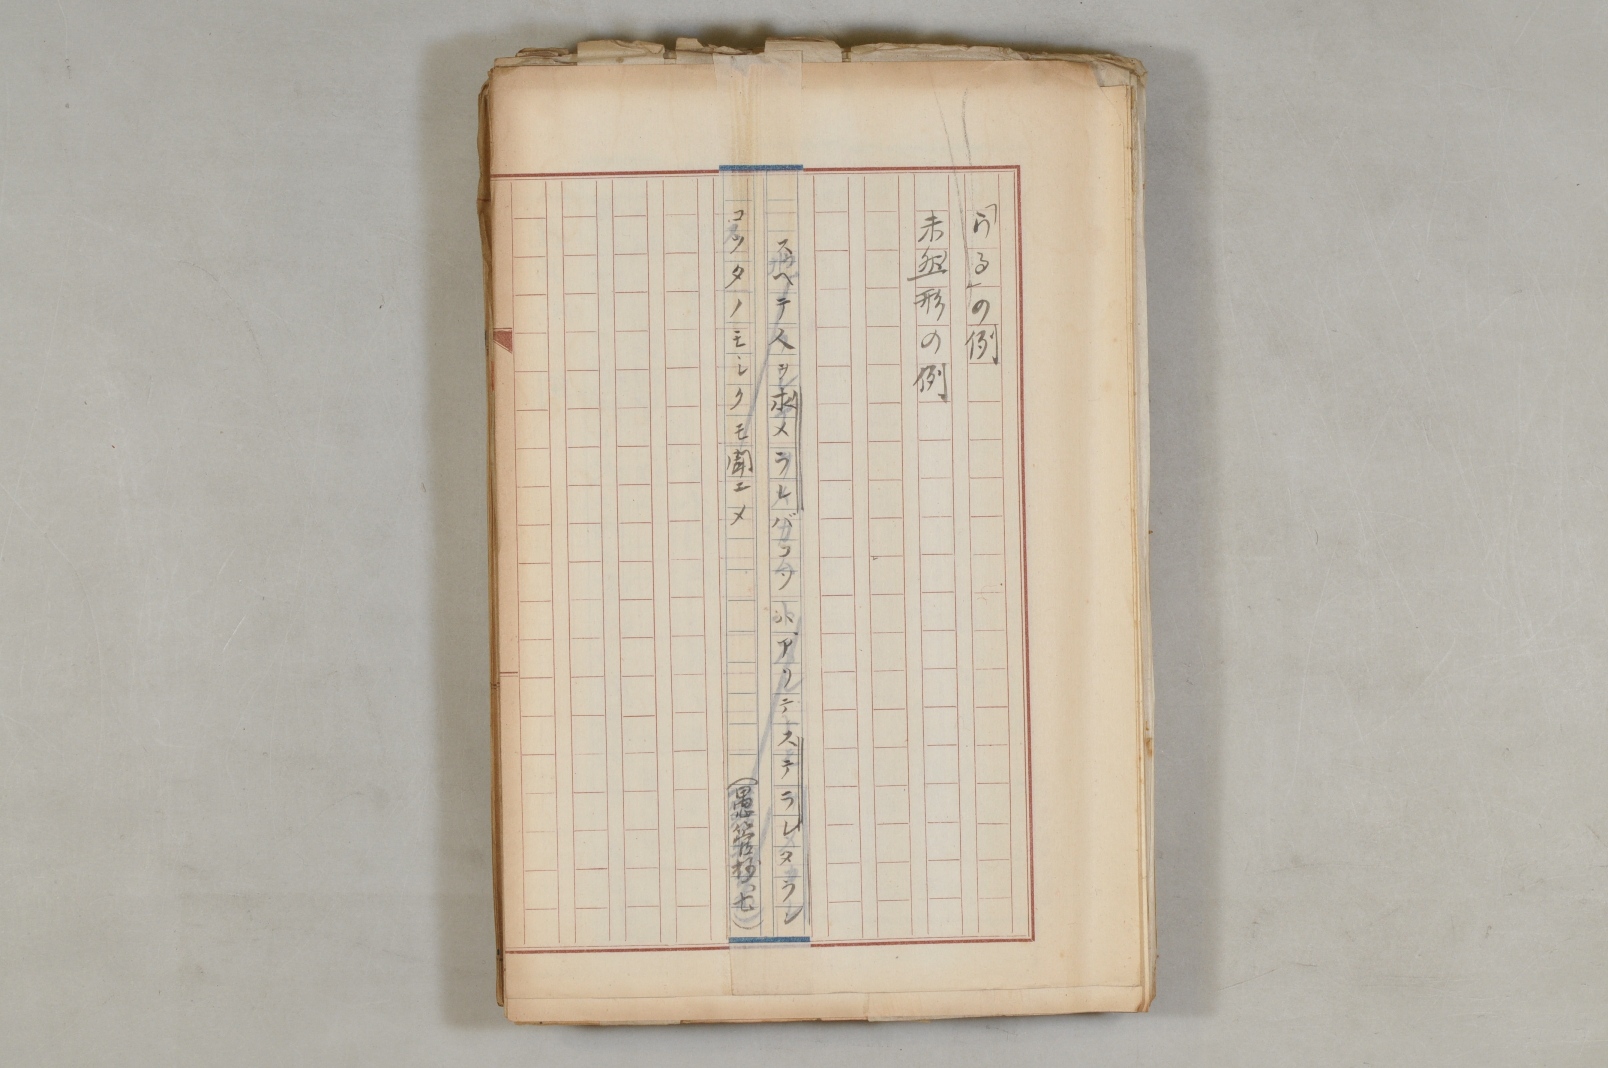 「らる」の例
未然形の例
スベテ人ヲ求メラレバコソ
アリテステラレタラン
コソタノモシクモ聞エメ
(愚管抄 七)